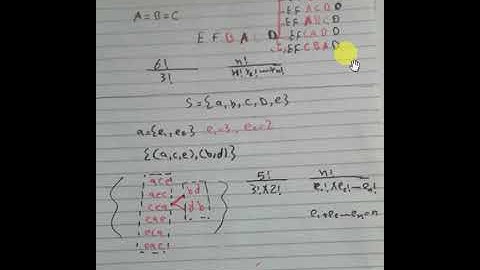 A=B=C
E F B A C D
E F A C D D
E F A B C D
E F C A D D
E F C B A D
6!
3!
n!
S={a,b,c,D,e}
a={e₁,e₂} e₁=3, e₂=2
{(a,c,e),(b,d)}
ace
aec
cea
cae
eca
eac
bd
db
5!
3!x2!
n!
e₁!xe₂!---eₙ!
e₁+e₂---eₙ=n